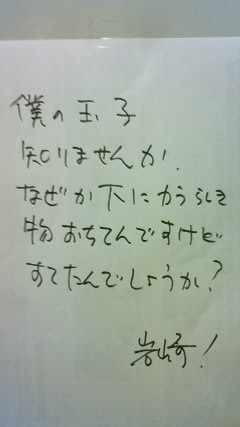 僕の玉子
知りませんか.
なぜか下にからしき
物おちてんですけど
すてたんでしょうか?
岩崎!